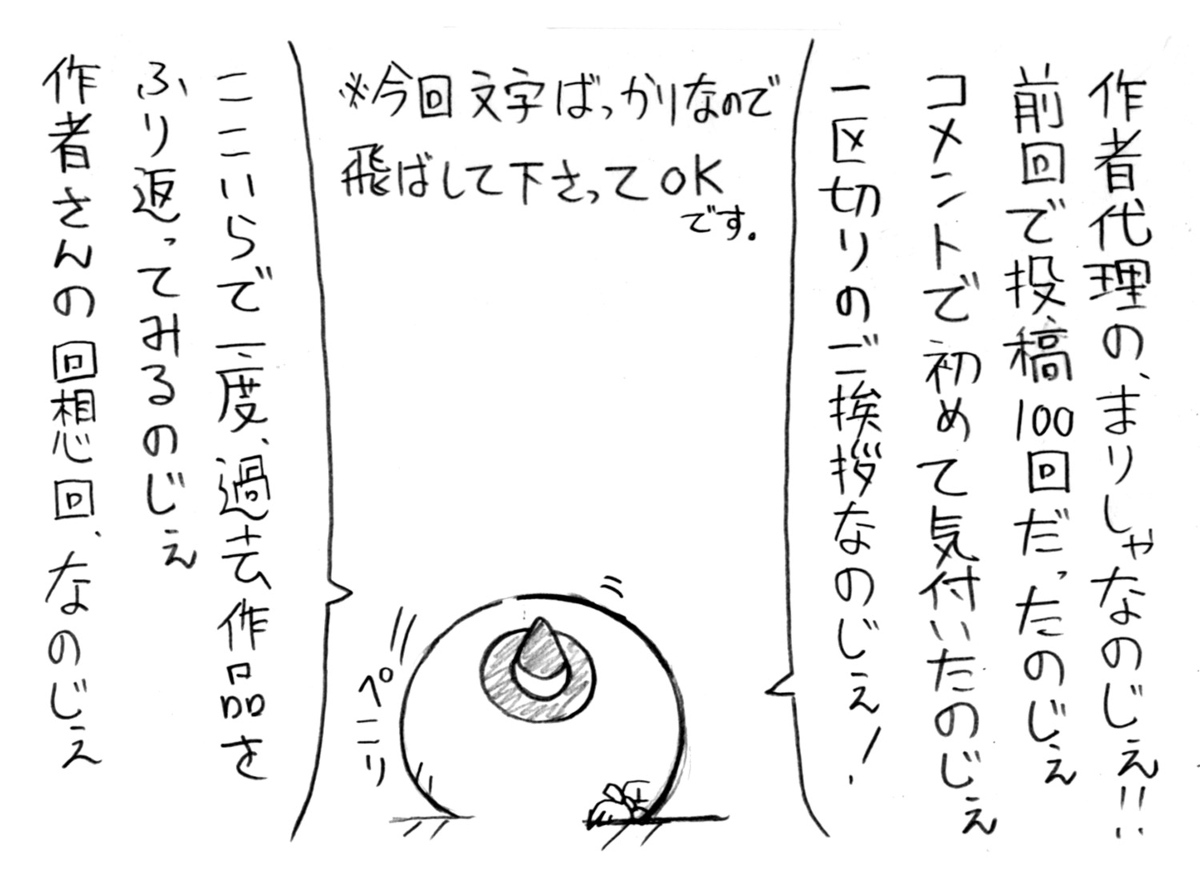 作者代理の、まりしゃなのじぇ!!
前回で投稿100回だったのじぇ
コメントで初めて気付いたのじぇ
一区切りのご挨拶なのじぇ!
※今回文字ばっかりなので
飛ばして下さってOK
です。
ペニリ
ここいらで一度、過去作品を
ふり返ってみるのじぇ
作者さんの回想回、なのじぇ